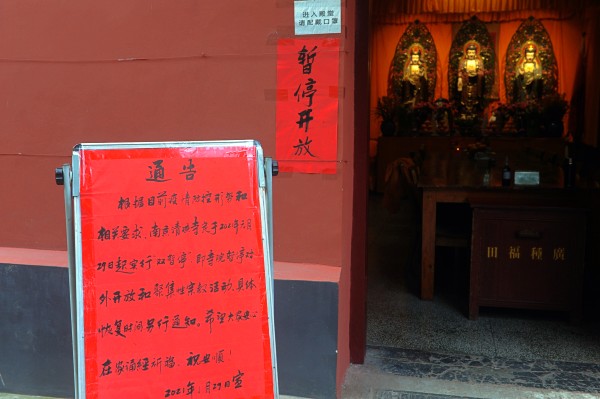 进入殿堂
请配戴口罩
暂停开放
通告
根据目前疫情防控形势和
相关要求,南清寺定于2021年月
29日起实行"双暂停",即寺院暂停对
外开放和聚集性宗教活动,具体
恢复时间另行通知。希望大家安心
在家诵经祈福。祝顺!
2021年月29日宣
田福種廣